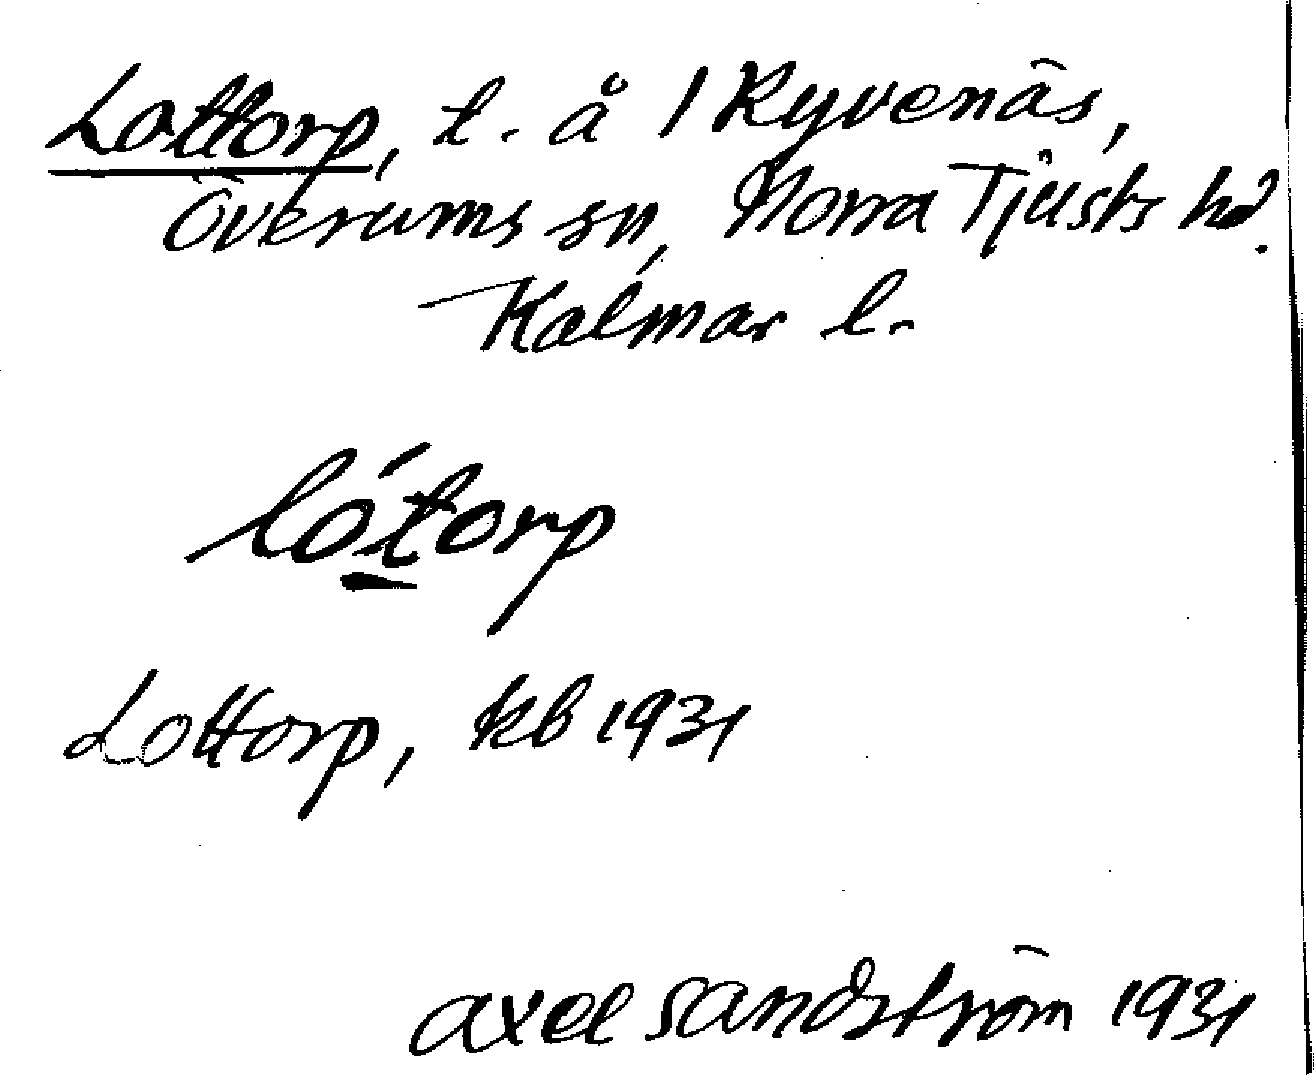 Lottorp, t. å 1 Ryvenäs,
Överums sn, Norra Tjusts hd.
Kalmar l.
lótorp
Lottorp, kb 1931
Axel Sandström 1931